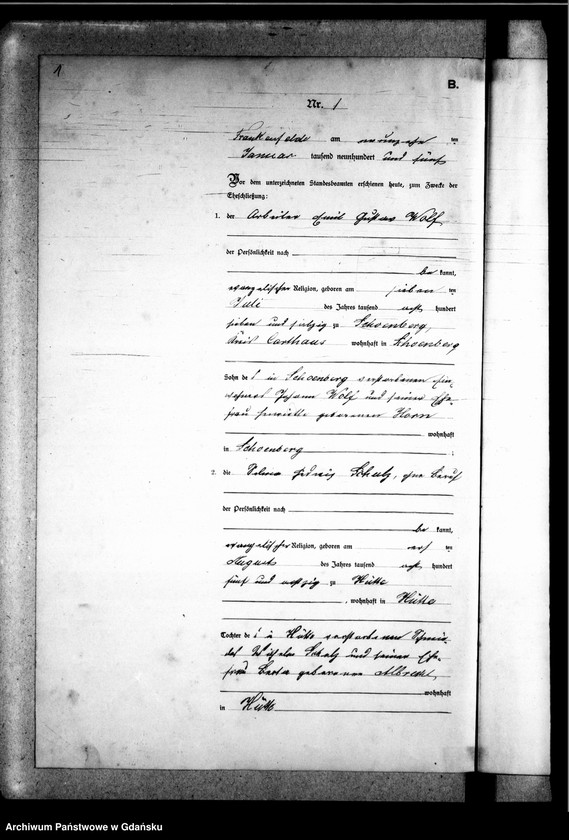 1
B.
Nr. 1
am neunzehn ten
Januar tausend neunhundert und fünf
Vor dem unterzeichneten Standesbeamten erschienen heute, zum Zwecke der
Eheschließung:
1. der Arbeiter Emil Gustav Wolf
der Persönlichkeit nach
be kannt,
evangelischer Religion, geboren am sieben ten
Juli des Jahres tausend acht hundert
sieben und siebzig zu Schoenberg,
Kreis Carthaus wohnhaft in Schoenberg
Sohn des in Schoenberg verstorbenen Ein-
wohners Johann Wolf und seiner Ehe-
frau Henriette geborenen Horn
wohnhaft
in Schoenberg ;
2. die Schulz, ohne Beruf
der Persönlichkeit nach
be kannt,
evangelischer Religion, geboren am ten
August des Jahres tausend acht hundert
fünf und achtzig zu Hütte
, wohnhaft in Hütte
Tochter des in Hütte verstorbenen Schmie-
des Wilhelm Schulz und seiner Ehe-
frau Berta geborenen Albrecht
wohnhaft
in Hütte
Archiwum Państwowe w Gdańsku